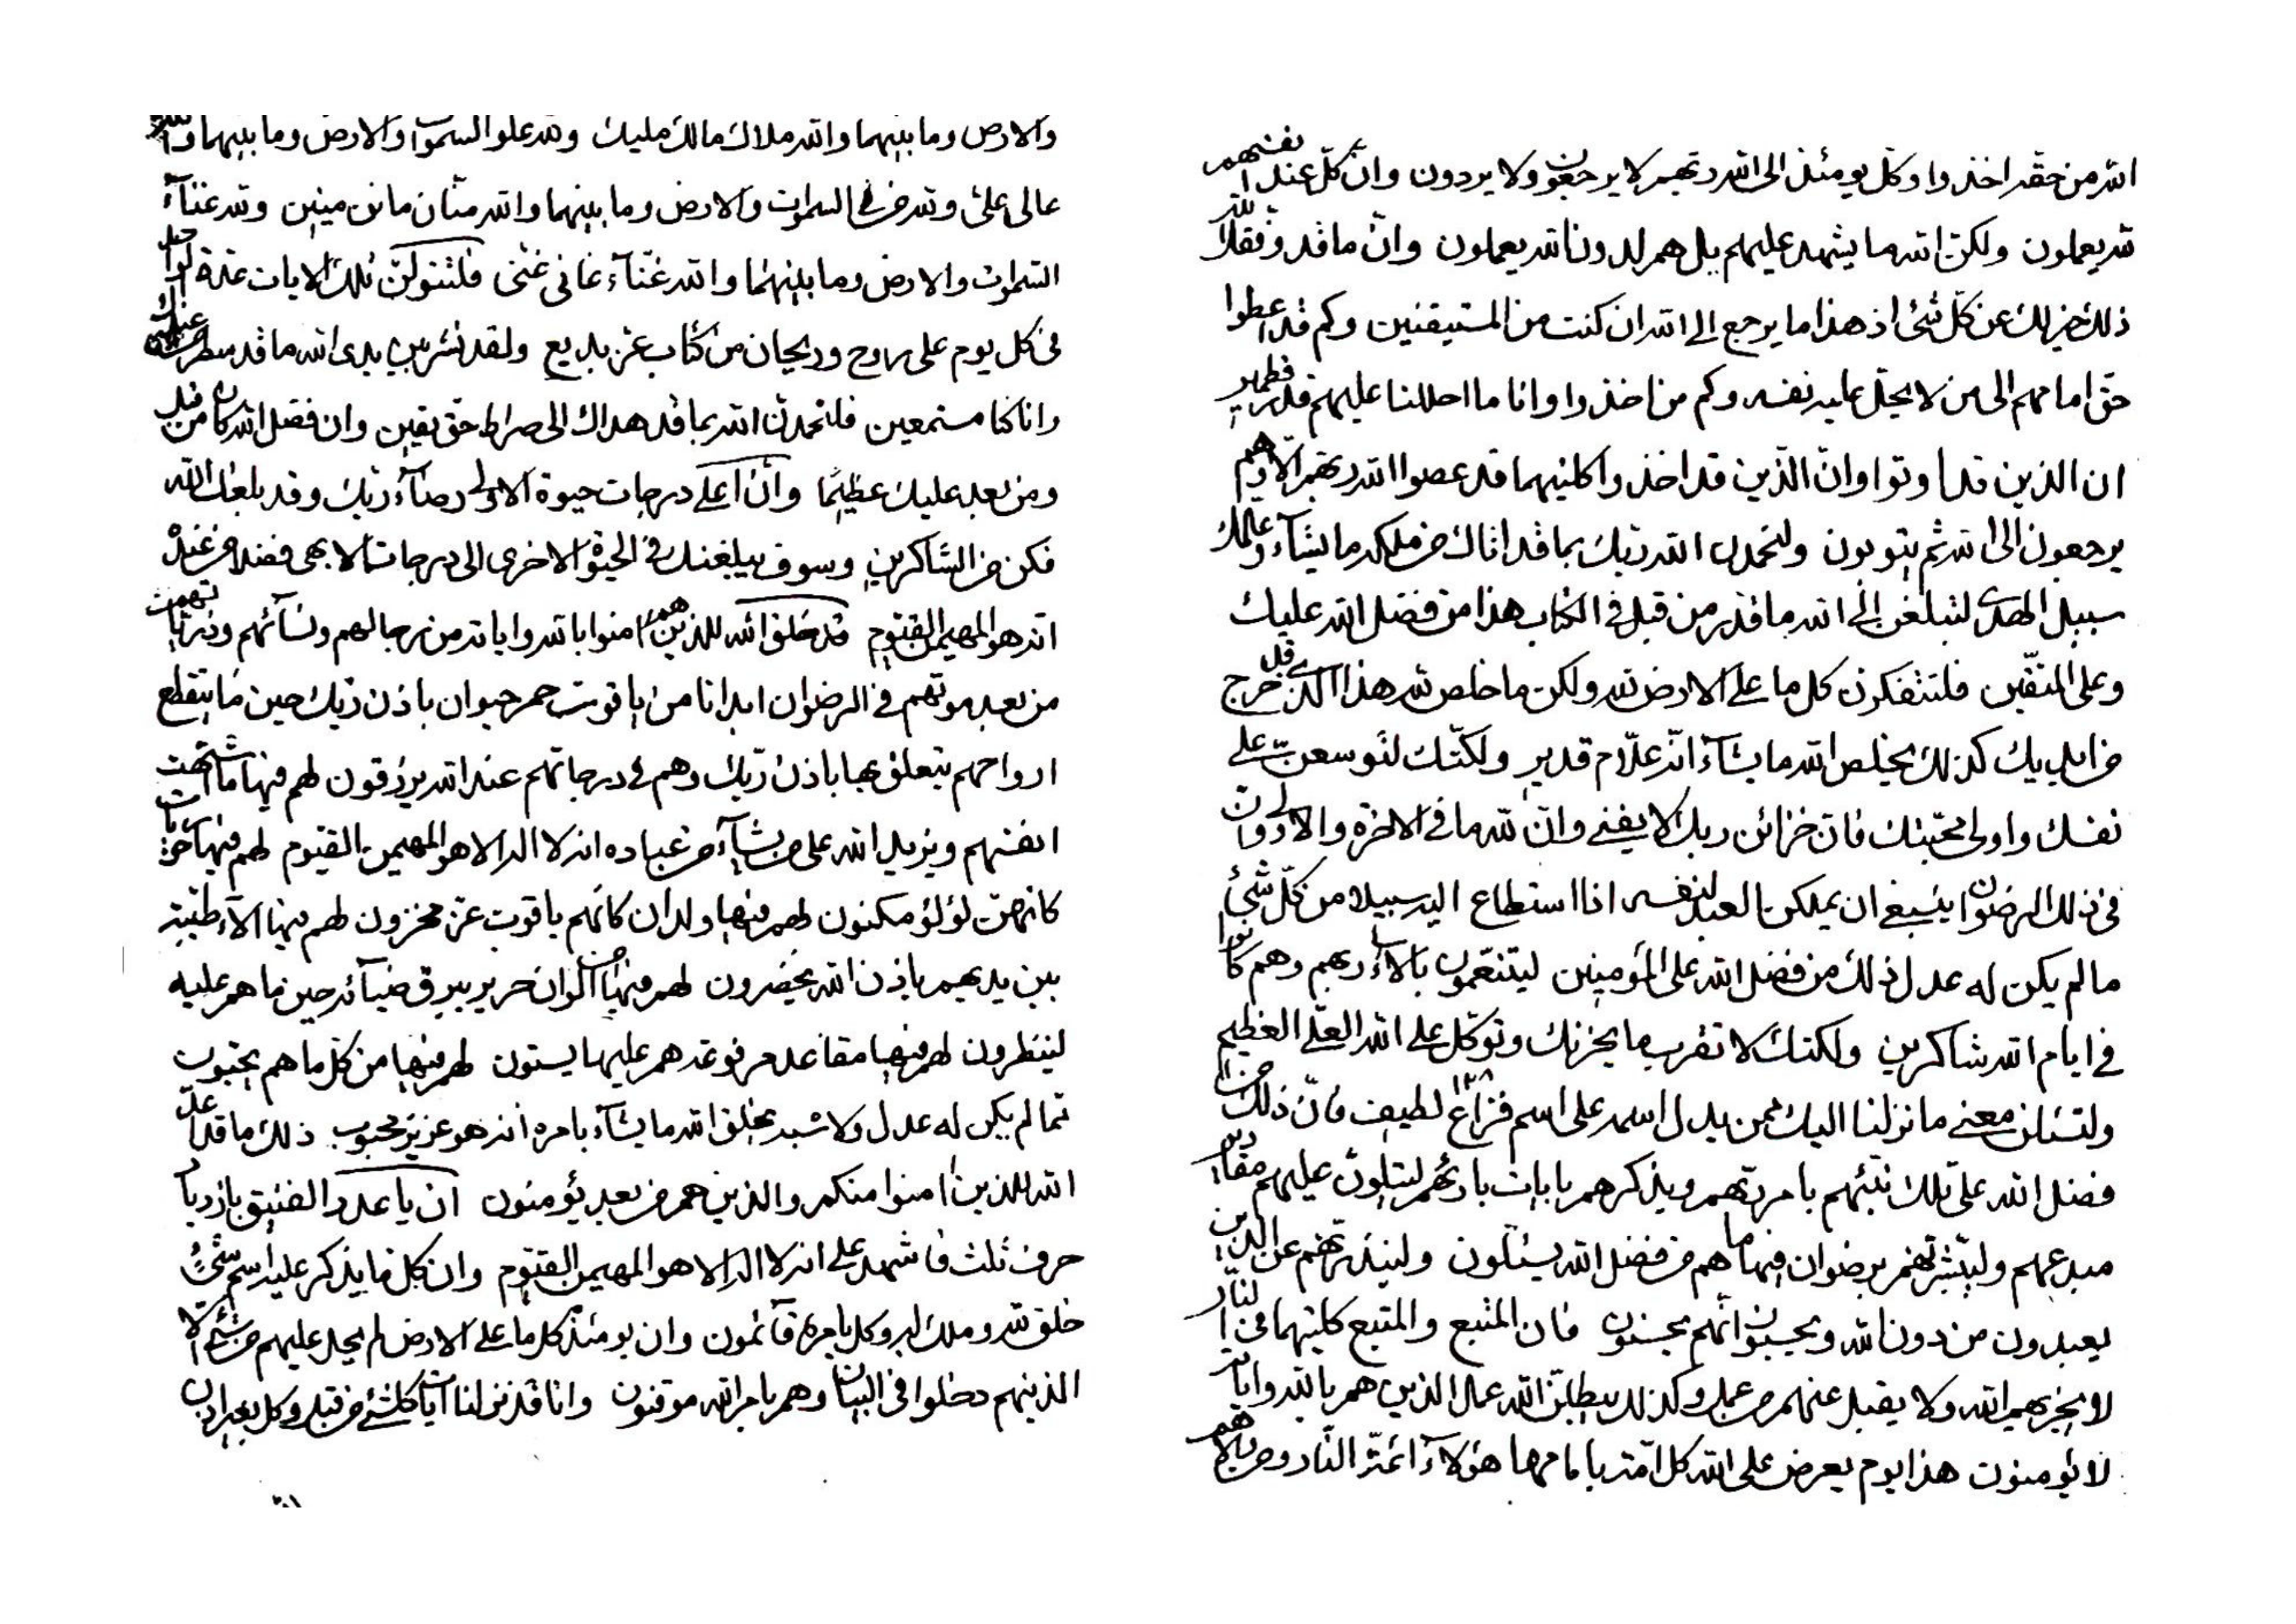 الله من حقه اخذوا وكل يومئذ الى الله ربهم لا يرجعون ولا يردون وان كل عند انفسهم
لله يعملون ولكن الله ما يشهد عليهم بل هم لدون الله يعملون وان ما قد وفقك لله
ذلك خير لك عن كل شئ اذ هذا ما يرجع الى الله ان كنت من المستيقنين وكم قد اعطوا
حق امامهم الى من لا يحل عليه نفسه وكم من اخذوا وانا ما احللنا عليهم قد
ان الذين قد اوتوا وان الذين قد اخذوا كليهما قد عصوا الله ربهم الا وهم
يرجعون الى الله ثم يتوبون ولتحمدن الله ربك بما قد اتاك من ملكه ما يشاء وعلمك
سبيل الهدى لتبلغن الى الله ما قدر من قبل في الكتاب هذا من فضل الله عليك
وعلى المتقين فلتتفكرون كل ما على الارض لله ولكن ما خلص لله هذا الذي قد خرج
من ايديك كذلك يخلص الله ما يشاء انه علام قدير ولكنك لتوسعن على
نفسك واولى محبتك فان خزائن ربك لا يفنى وان لله ما في الاخرة والاولى وان
في ذلك الرضوان ينبغي ان يملكن العبد لنفسه اذا استطاع اليه سبيلا من كل شئ
ما لم يكن له عدل ذلك من فضل الله على المؤمنين ليتنعمون بالاء ربهم وهم كانوا
في ايام الله شاكرين ولكنك لا تقرب ما يحزنك وتوكل على الله العلي العظيم
ولتسئلن معنى ما نزلنا اليك ممن يدل اسمه على اسم فزاع ١٣٨ لطيف فان ذلك من
فضل الله على تلك نبئهم بامر ربهم ويذكرهم بايات بارئهم ليتلون عليهم مقادير
مبدعهم وليبشرنهم برضوان فيها ما هم من فضل الله يسئلون ولينذرنهم عن الذين
يعبدون من دون الله ويحسبون انهم يحسنون فان المتبع والمتبع كليهما في النار
لا يجزيهم الله ولا يقبل عنهم من عمل وكذلك يبطلن الله عمال الذين هم بالله واياته
لا يؤمنون هذا يوم يعرض على الله كل امة بامامها هؤلاء ائمة النار
والارض وما بينهما والله ملاك مالك مليك ولله علو السموات والارض وما بينهما والله
عالى على ولله من في السموات والارض وما بينهما والله منان مانن منين ولله غناء
السموات والارض وما بينهما والله غناء غانى غنى فلتتولن تلك الايات عدة
في كل يوم على روح وريحان من كتاب عز بديع ولقد نشر بين يدى الله ما قد سطر من
وانا كنا مستمعين فلتحمدن الله بما قد هداك الى صراط حق يقين وان فضل الله كان من قبل
ومن بعد عليك عظيما وان اعلى درجات حيوة الاولى رضاء ربك وقد بلغك الله
فكن من الشاكرين وسوف يبلغنك في الحيوة الاخرى الى درجات الابهى فضلا من عنده
انه هو المهيمن القيوم قد خلق الله للذينهم امنوا بالله واياته من رجالهم ونسائهم وذرياتهم
من بعد موتهم في الرضوان ابدانا من ياقوت حمر حيوان باذن ربك حين ما ينقطع
ارواحهم يتعلق بها باذن ربك وهم في درجاتهم عند الله يرزقون لهم فيها ما اشتهت
انفسهم ويزيد الله على من يشاء من عباده انه لا اله الا هو المهيمن القيوم لهم فيها
كانهن لؤلؤ مكنون لهم فيها ولدان كانهم ياقوت عز مخزون لهم فيها الاء طيبة
بين يديهم باذن الله يحضرون لهم فيها من الوان حرير يبرق ضيائه حين ما هم عليه
لينظرون لهم فيها مقاعد مرفوعة هم عليها يستون لهم فيها من كل ما هم يحبون
مما لم يكن له عدل ولا شبه يخلق الله ما يشاء بامره انه هو عزيز محبوب ذلك ما قد اعد
الله للذين امنوا منكم والذين هم من بعد يؤمنون ان يا عدد الفئيق بازدياد
حرف ثلث فاشهد على انه لا اله الا هو المهيمن القيوم وان كل ما يذكر عليه اسم شئ
خلق لله وملك له وكل بامره قائمون وان يومئذ كل ما على الارض لم يحل عليهم من شئ الا
الذينهم دخلوا في البيان وهم بامر الله موقنون وانا قد نزلنا ايات كلشئ من قبل وكل